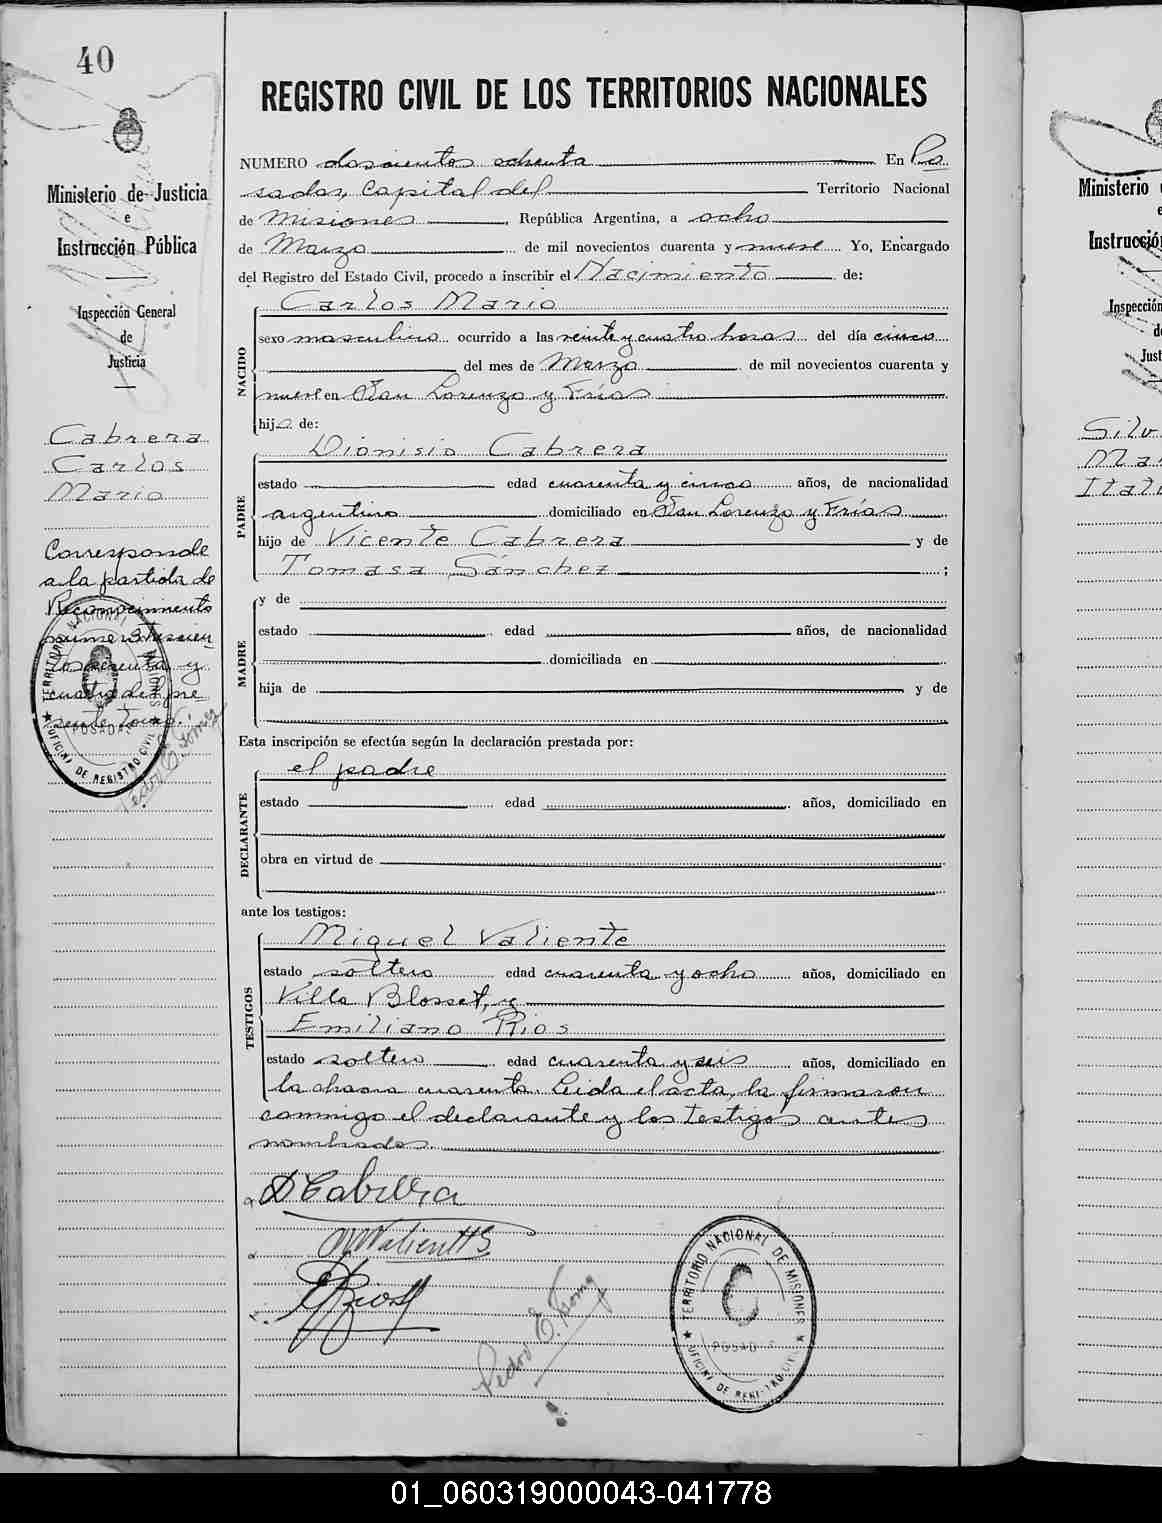 40
Ministerio de Justicia
e
Instrucción Pública
Inspección General
de
Justicia
Cabrera
Carlos
Mario
Corresponde
a la partida de
Reconocimiento
numero trescien
tos sesenta y
cuatro del pre
sente tomo.
TERRITORIO NACIONAL DE MISIONES
POSADAS
OFICINA DE REGISTRO CIVIL
Pedro E. Gómez
REGISTRO CIVIL DE LOS TERRITORIOS NACIONALES
NUMERO doscientos ochenta En Po
sadas, capital del Territorio Nacional
de Misiones, República Argentina, a ocho
de Marzo de mil novecientos cuarenta y nueve Yo, Encargado
del Registro del Estado Civil, procedo a inscribir el Nacimiento de:
NACIDO
Carlos Mario
sexo masculino ocurrido a las veinte y cuatro horas del día cinco
del mes de Marzo de mil novecientos cuarenta y
nueve en San Lorenzo y Frías
hijo de:
PADRE
Dionisio Cabrera
estado edad cuarenta y cinco años, de nacionalidad
argentino domiciliado en San Lorenzo y Frías
hijo de Vicente Cabrera y de
Tomasa Sánchez ;
MADRE
y de
estado edad años, de nacionalidad
domiciliada en
hija de y de
Esta inscripción se efectúa según la declaración prestada por:
DECLARANTE
el padre
estado edad años, domiciliado en
obra en virtud de
ante los testigos:
TESTIGOS
Miguel Valiente
estado soltero edad cuarenta y ocho años, domiciliado en
Villa Blosset, y
Emiliano Rios
estado soltero edad cuarenta y seis años, domiciliado en
la chacra cuarenta. Leida el acta, la firmaron
conmigo el declarante y los testigos antes
nombrados.
D Cabrera
M Valiente
E Rios
Pedro E. Gómez
TERRITORIO NACIONAL DE MISIONES
POSADAS
OFICINA DE REGISTRO CIVIL
Ministerio
Instrucció
Inspección
d
Just
Silv
Mar
Itati
01_060319000043-041778